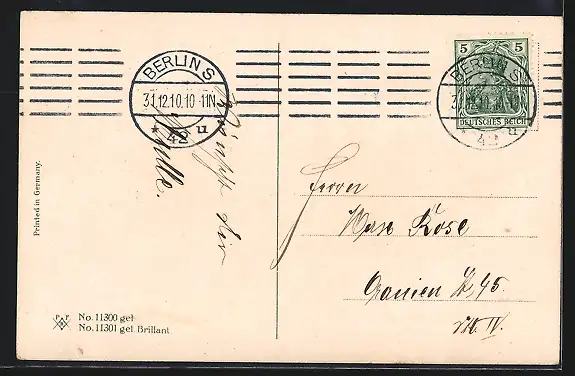 BERLIN S
31.12.10.10-11N
* 42 u
5 5
BERLIN S
DEUTSCHES REICH
* 42 u
Wünscht Dir
Herrn
Max Rose
Oranien Str. 45.
IV.
Printed in Germany.
P F B
No. 11300 gel
No. 11301 gel. Brillant